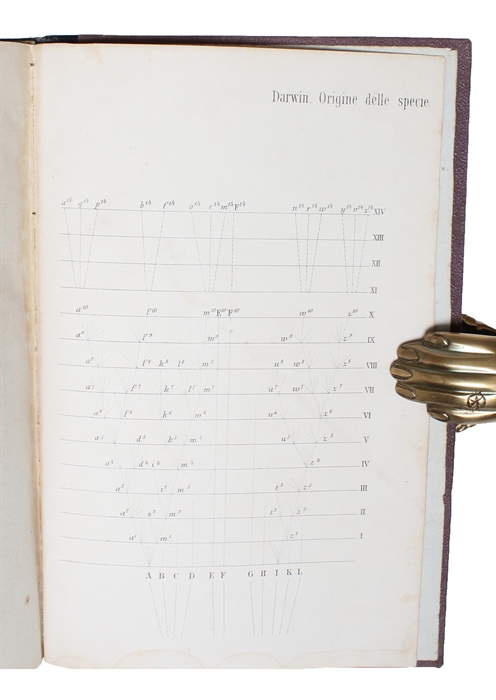 Darwin. Origine delle specie.
a¹⁴ q¹⁴ p¹⁴ b¹⁴ f¹⁴ o¹⁴ e¹⁴ m¹⁴ F¹⁴ n¹⁴ r¹⁴ w¹⁴ y¹⁴ v¹⁴ z¹⁴ XIV
XIII
XII
XI
a¹⁰ f¹⁰ m¹⁰ E¹⁰ F¹⁰ w¹⁰ z¹⁰ X
a⁹ f⁹ m⁹ w⁹ z⁹ IX
a⁸ f⁸ k⁸ l⁸ m⁸ u⁸ w⁸ z⁸ VIII
a⁷ f⁷ k⁷ l⁷ m⁷ u⁷ w⁷ z⁷ VII
a⁶ f⁶ k⁶ m⁶ u⁶ z⁶ VI
a⁵ d⁵ k⁵ m⁵ u⁵ z⁵ V
a⁴ d⁴ i⁴ m⁴ z⁴ IV
a³ i³ m³ t³ z³ III
a² s² m² t² z² II
a¹ m¹ z¹ I
A B C D E F G H I K L